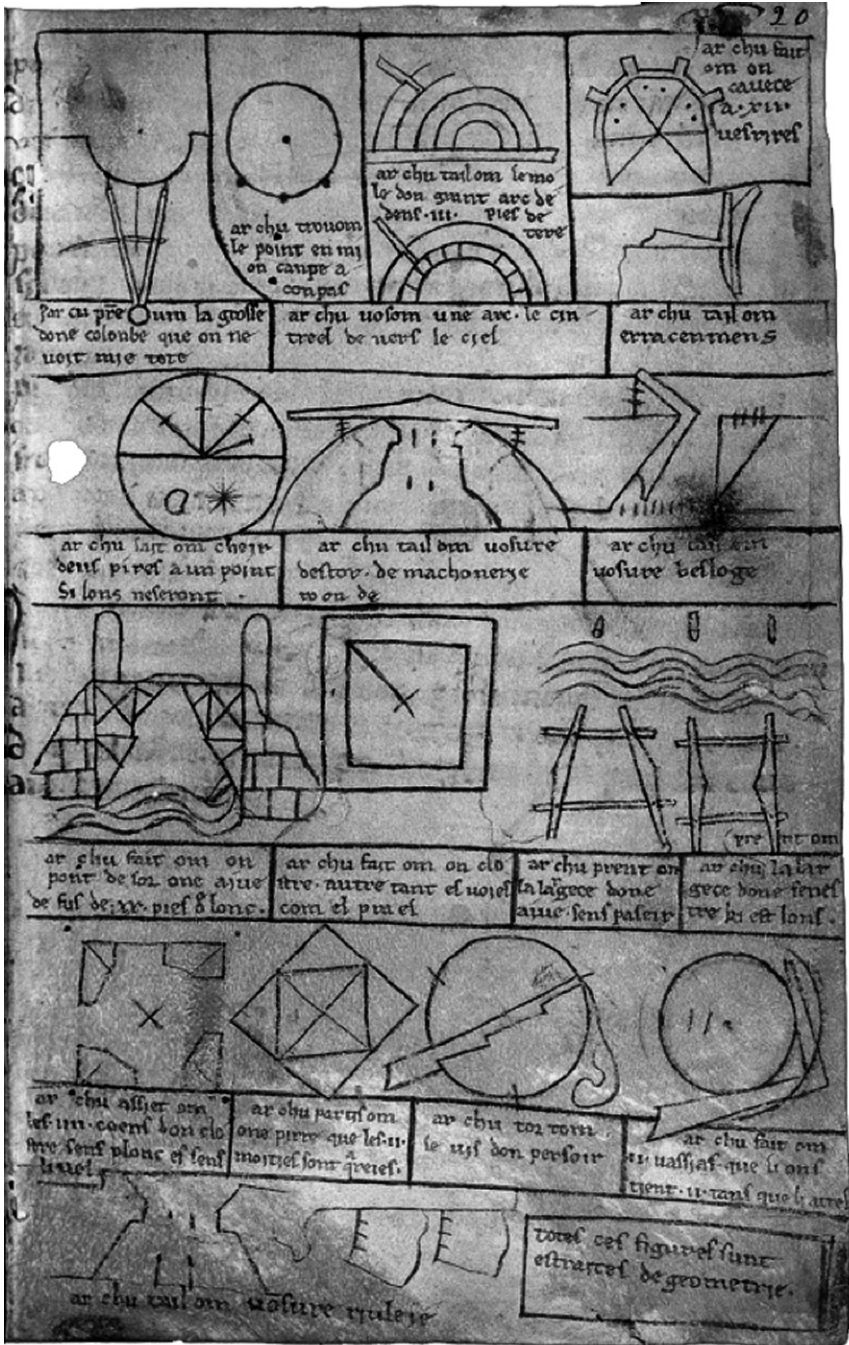 20
ar chu fait
om on
cavece
a · xii ·
vesrires
ar chu trovom
le point en mi
on canpe a
conpas
ar chu tail om le mo
le don grant arc de
dens · iii · pies de
tere
Par cu prēt um la grosse
done colonbe que on ne
voit mie tote
ar chu vosom une arc · le cin
treel de vers le ciel
ar chu tail om
erracenmens
ar chu fait om cheir
deus pires a un point
si lons ne seront ·
ar chu tail om vosure
destor · de machonerie
roonde
ar chu tail om
vosure besloge
ar chu fait om on
pont desor one aive
de fus de · xx · pies d lonc ·
ar chu fait om on clo
stre · autre tant es voies
com el prael
ar chu prent om
la largece done
aive · sens paseir
prent om
ar chu la lar
gece done fenes
tre ki est lons ·
ar chu assiet om
les · iiii · coens don clo
stre sens plonc et sens
livel
ar chu partis om
one pirre que les · ii ·
moities sont qreies ·
ar chu tor tom
le vis don persoir
ar chu fait om
· ii · vassias que li ons
tient · ii · tans que li atres
ar chu tail om vosure riuleie
totes ces figures sunt
estraites de geometrie ·